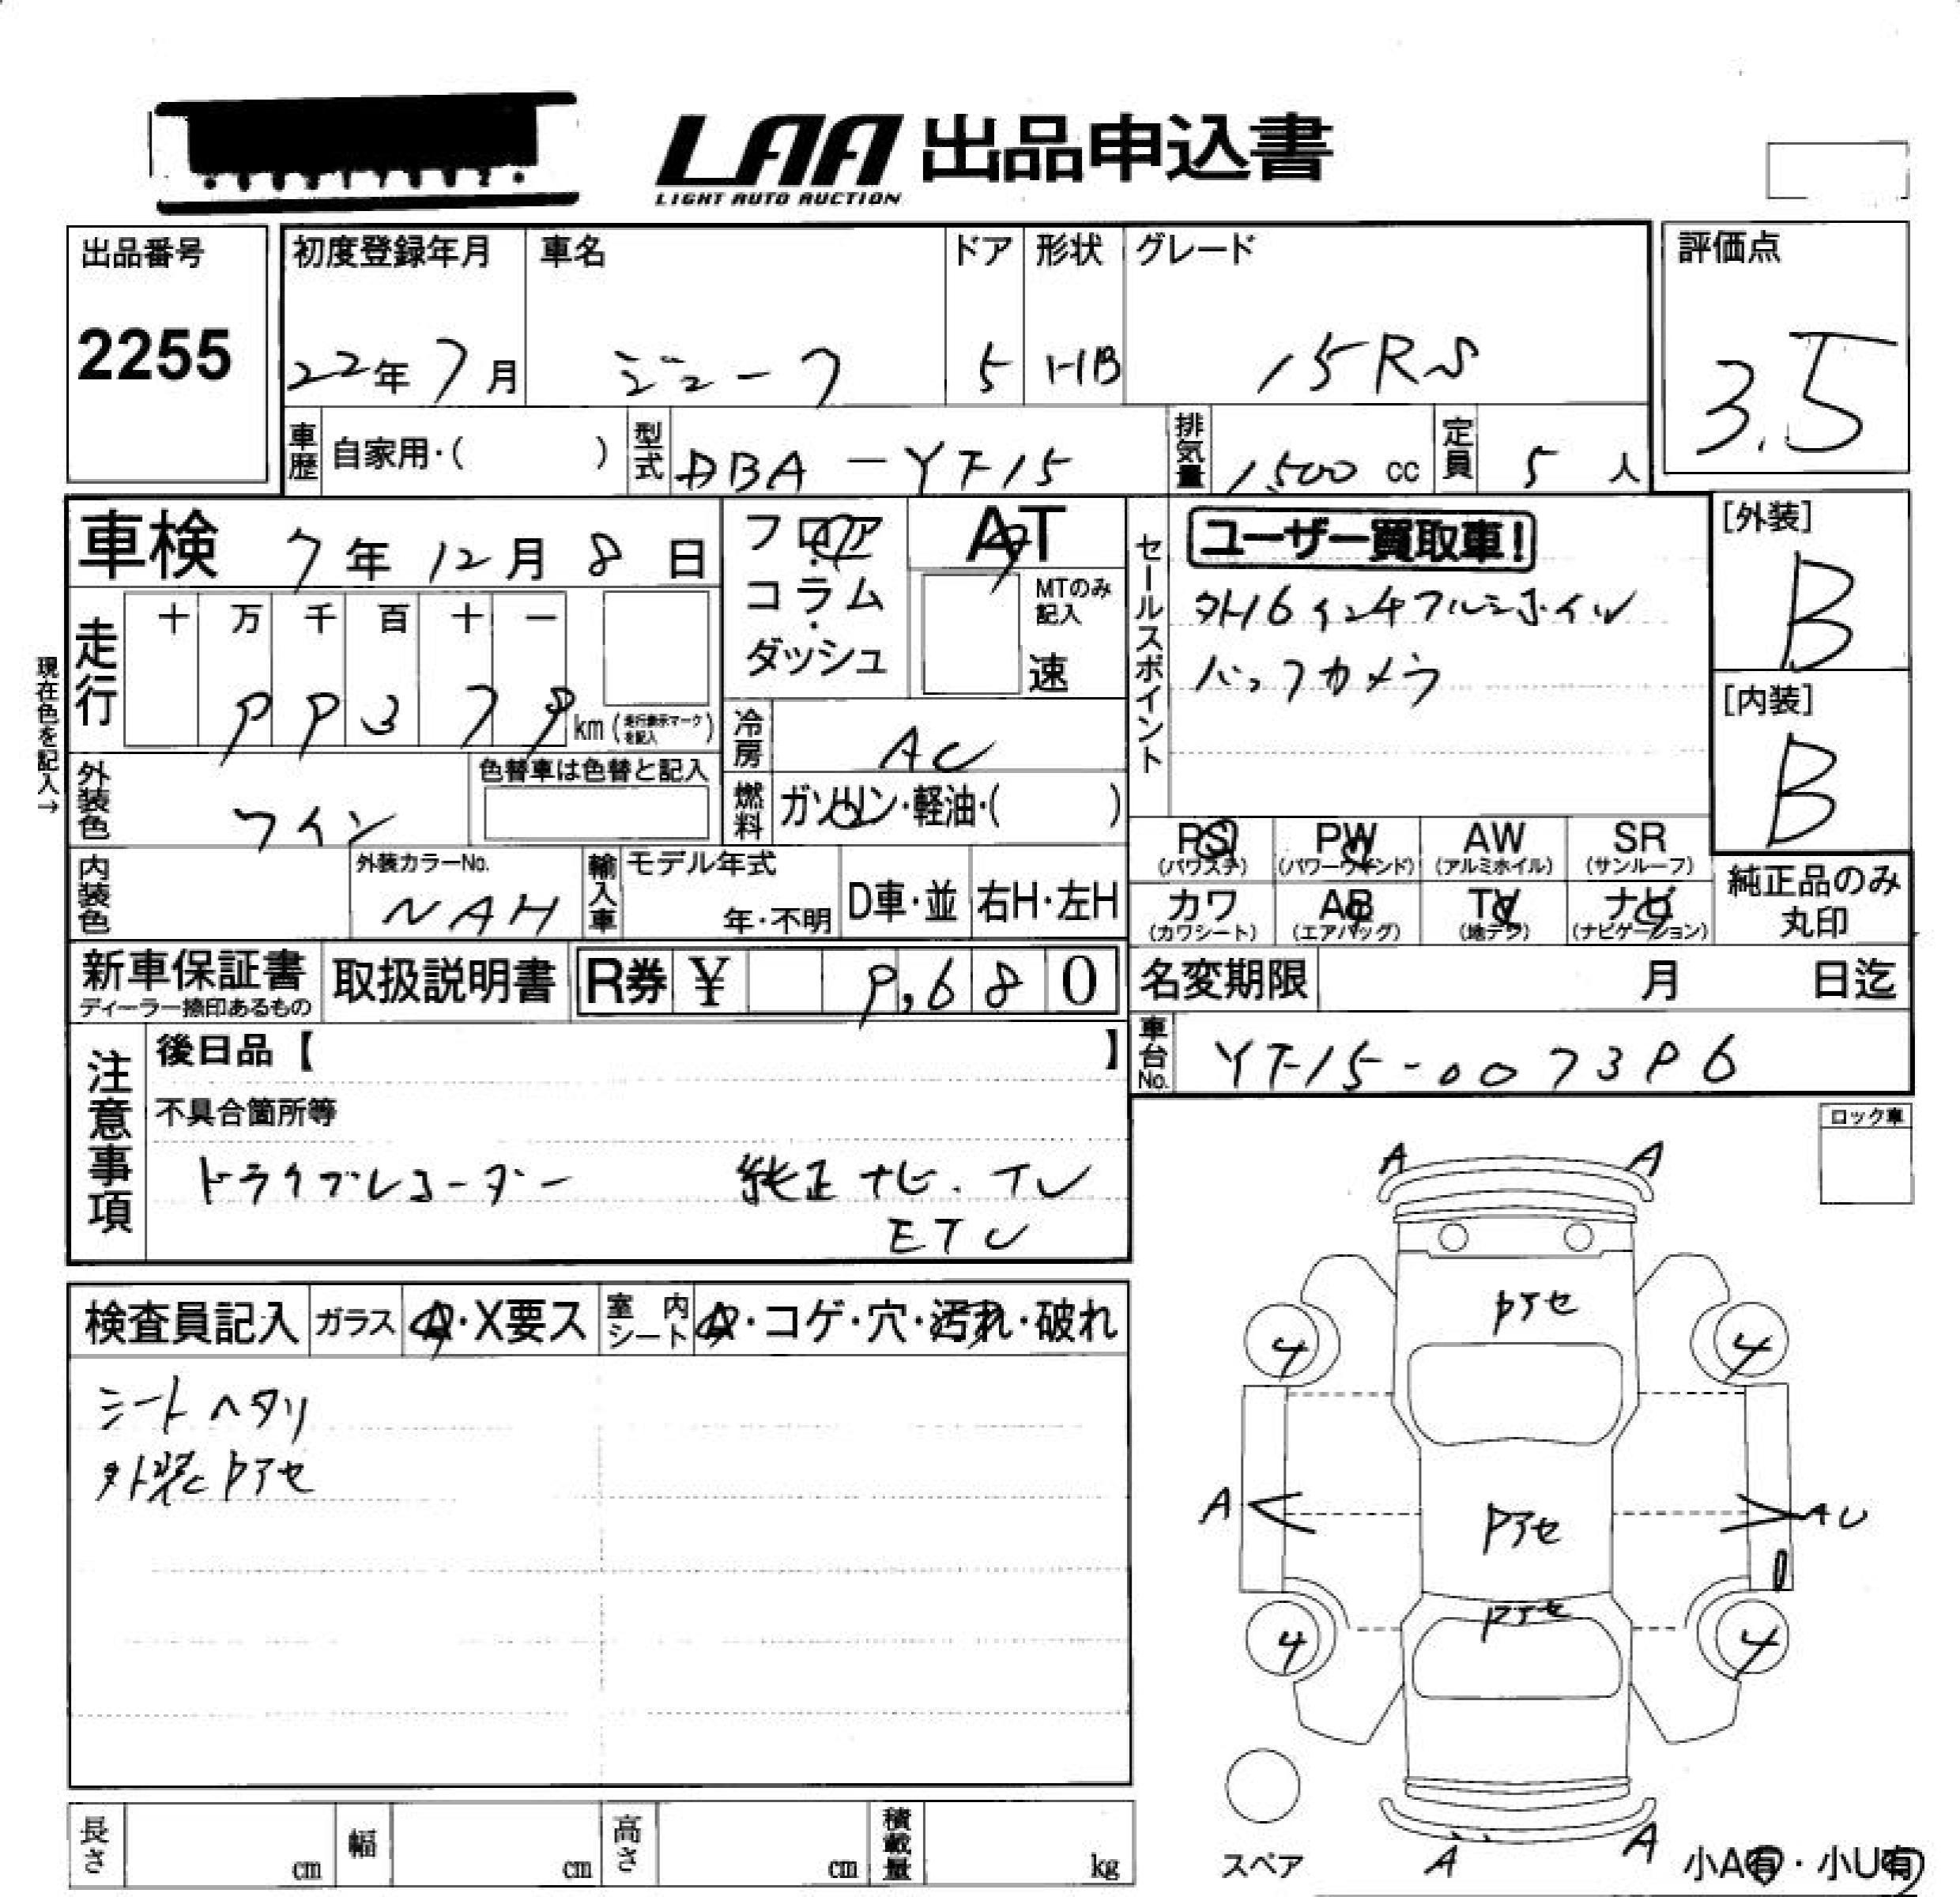 LAA 出品申込書
LIGHT AUTO AUCTION
出品番号
2255
初度登録年月
22年7月
車名
ジューク
ドア
5
形状
HB
グレード
15RS
評価点
3.5
車歴
自家用・( )
型式
DBA-YF15
排気量
1,500 cc
定員
5 人
車検 7年12月8日
フロア・コラム・ダッシュ
AT
MTのみ記入
速
セールスポイント
ユーザー買取車!
外16インチアルミホイル
バックカメラ
[外装]
B
[内装]
B
現在色を記入→
走行
十 万 千 百 十 一
99379 km (走行表示マークを記入)
冷房
AC
燃料
ガソリン・軽油・( )
外装色
ワイン
色替車は色替と記入
内装色
外装カラーNo.
NAH
輸入車
モデル年式
年・不明
D車・並
右H・左H
PS (パワステ)
PW (パワーウインド)
AW (アルミホイル)
SR (サンルーフ)
カワ (カワシート)
AB (エアバッグ)
TV (地デジ)
ナビ (ナビゲーション)
純正品のみ丸印
新車保証書
ディーラー捺印あるもの
取扱説明書
R券 ¥ 9,680
名変期限 月 日迄
車台No.
YF15-007396
注意事項
後日品【 】
不具合箇所等
ドライブレコーダー 純正ナビ.TV
ETC
ロック車
検査員記入
ガラス
A・X要ス
室内シート
A・コゲ・穴・汚れ・破れ
シートヘタリ
外装色アセ
A A
色アセ
4 4
A
色アセ
AU
色アセ
4 4
A A
スペア
小A有・小U有
長さ cm
幅 cm
高さ cm
積載量 kg